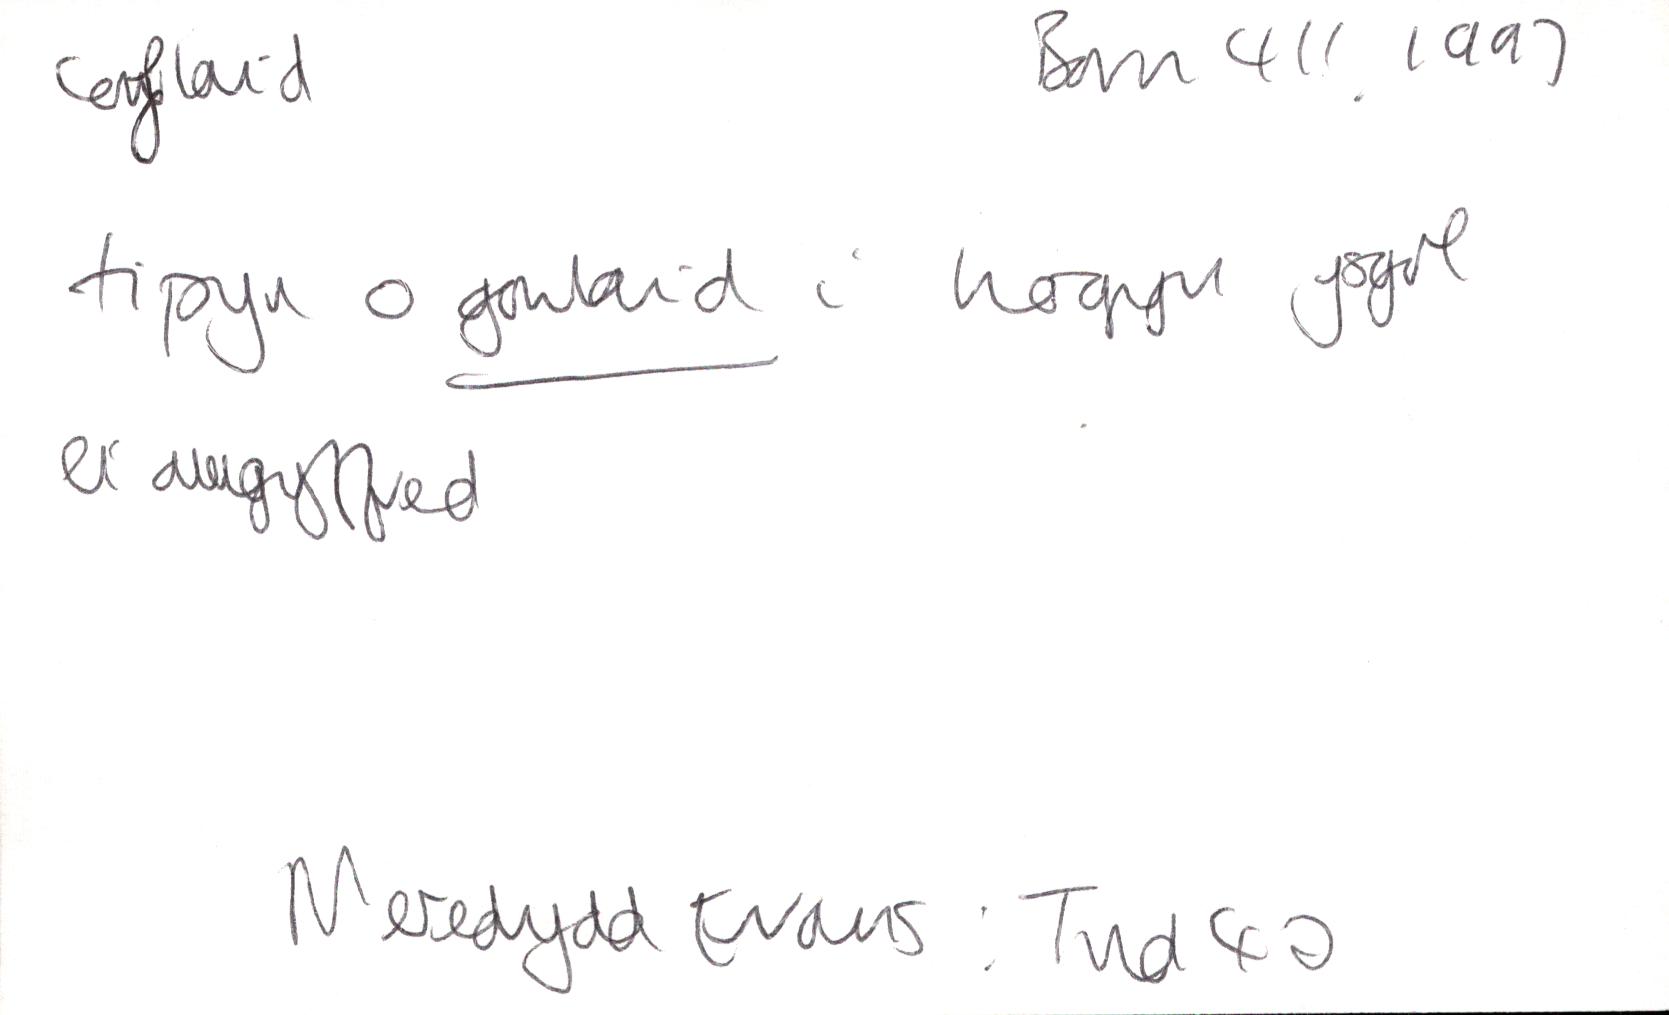 coflaid Barn 411. 1997
tipyn o gowlaid i hogyn ysgol
ei amgyffred
Meredydd Evans : Tud 40